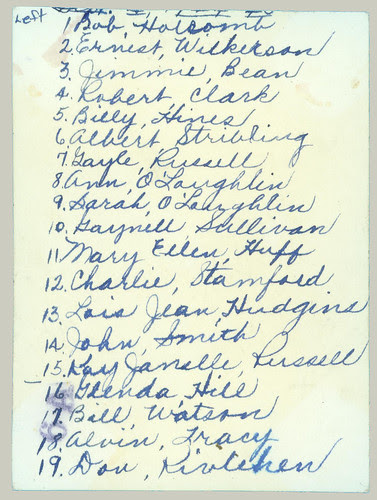 Left
1 Bob, Holcomb
2. Ernest, Wilkerson
3. Jimmie, Bean
4. Robert, Clark
5. Billy, Hines
6. Albert, Stribling
7. Gayle, Russell
8. Ann, O'Loughlin
9. Sarah, O'Loughlin
10. Gaynell Sullivan
11 Mary Ellen, Huff
12. Charlie, Stamford
13. Lois Jean, Hudgins
14. John, Smith
15. Kay Janelle, Russell
16. Glenda, Hill
17. Bill Watson
18. Alvin, Tracy
19. Don,